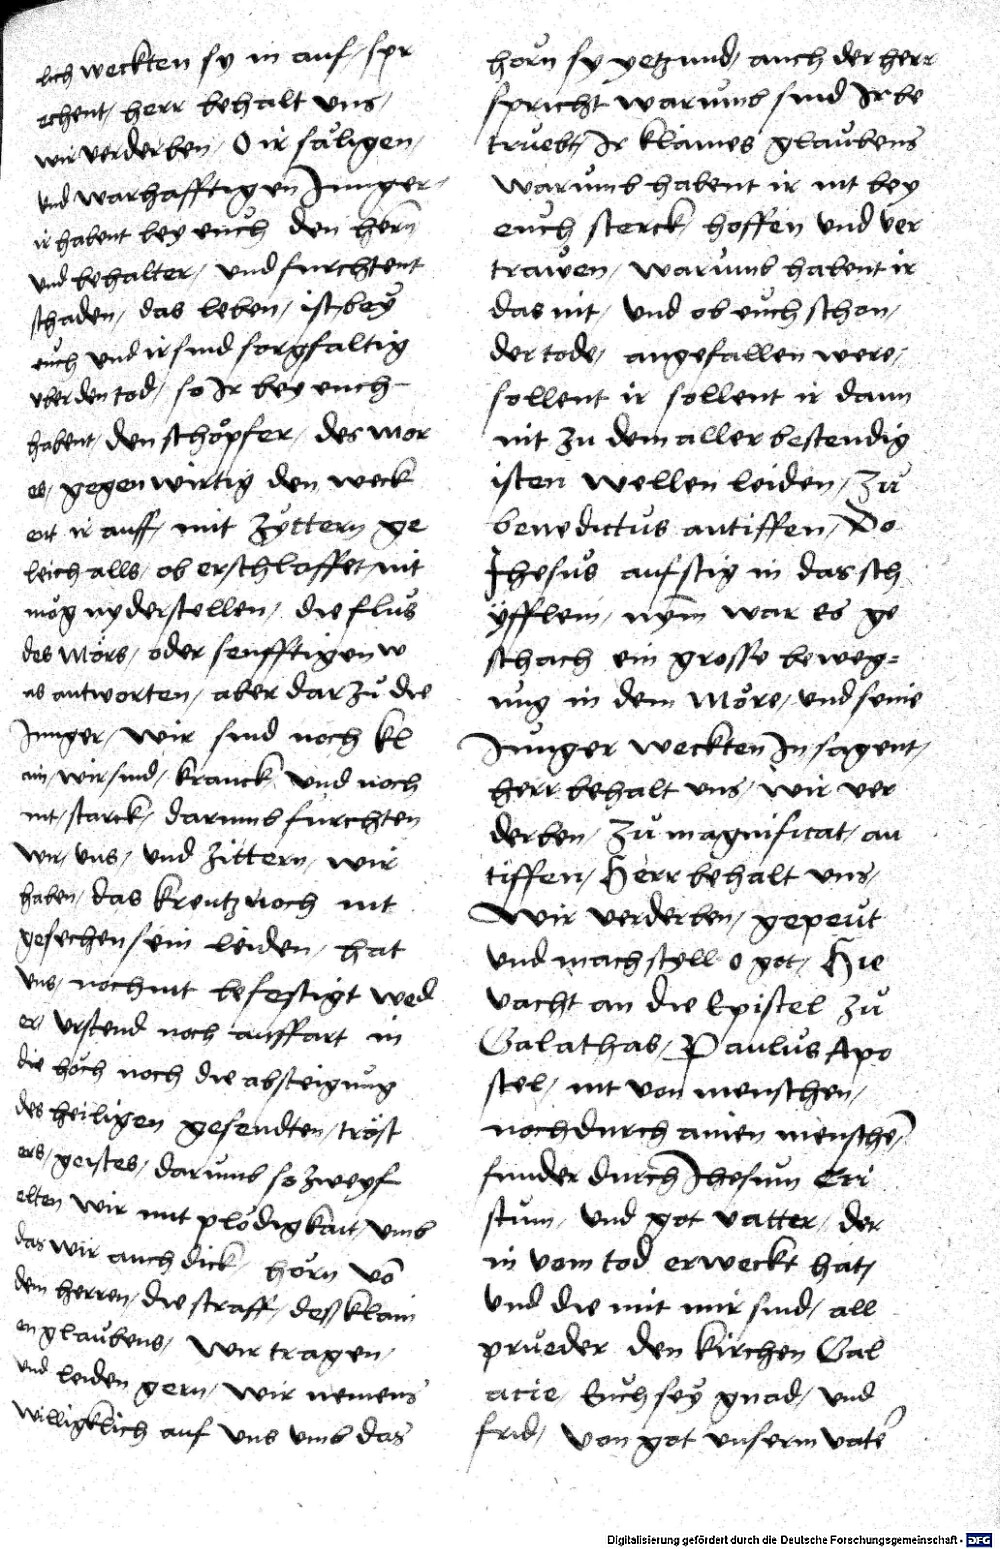 lich weckten sy in auf/ spr
echent/ herr behalt vns/
wir verderben/ O ir säligen/
vnd warhafftigen Junger
ir habent bey euch den hern̄
vnd behalter/ vnd furchtent
schaden/ das leben/ ist bey
euch vnd ir sind sorgfaltig
vber den tod/ so Ir bey euch
habent/ den schöpfer/ des mör
es/ gegenwirtig den weck
ent ir auff/ mit zyttern ge
leich alls/ ob er schlaffet/ nit
mög nyderstellen/ die flus
des mörs/ oder senfftigen w
as antworten/ aber dar zů die
Junger/ wir sind noch kl
ain/ wir sind/ kranck/ vnd noch
nit/ starck/ darumb furchten
wir/ vns/ vnd zittern/ wir
haben/ das kreutz noch nit
gesechen sein leiden/ hat
vns/ noch nit befestigt wed
er/ vrstend noch auffart in
die höch noch die absteigung
des heiligen gesendten/ tröst
ers/ geistes/ darumb so zweyf
elten wir mit plödigkait/ vmb
das wir auch dick/ hörn vō
dem herren/ die straff/ dess klain
en glaubens/ wir tragen/
vnd leiden gern/ wir nemens
willigklich auf vns vmb das
hörn sy yetzund/ auch der herr
spricht warumb sind Ir be
truebt/ Ir klaines glaubens
warumb habent ir nit bey
euch sterck/ hoffen vnd ver
trawen/ warumb habent ir
das nit/ vnd ob euch schon/
der tode/ angefallen were/
sollent ir sollent ir dann
nit zu dem aller bestendig
isten wellen leiden/ Zů
benedictus antiffen/ Do
Jhesus aufstig in das sch
ÿfflein/ nym̄ war es ge
schach ein grosse beweg=
ung in dem möre/ vnd seine
Junger weckten In sagent/
herr behalt vns/ wir ver
derben/ Zů magnificat/ an
tiffen/ Herr behalt vns/
wir verderben/ gepeut
vnd mach styll o got/ Hie
vacht an die Epistel zů
Galathas/ Paulus Apo
stel/ nit von menschen/
noch durch ainen mensche/
sunder durch Jhesum Cri
stum/ vnd got vatter/ der
in vom tod erweckt hat/
vnd die mit mir sind/ all
prueder den kirchen Gal
acie/ Euch sey gnad/ vnd
frid/ von got vnserm vate
Digitalisierung gefördert durch die Deutsche Forschungsgemeinschaft - DFG